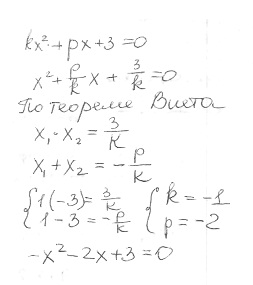 kx² + px + 3 = 0
x² + p/k x + 3/k = 0
По теореме Виета
x₁ · x₂ = 3/k
x₁ + x₂ = - p/k
{ 1(-3) = 3/k { k = -1
1 - 3 = - p/k p = -2
-x² - 2x + 3 = 0